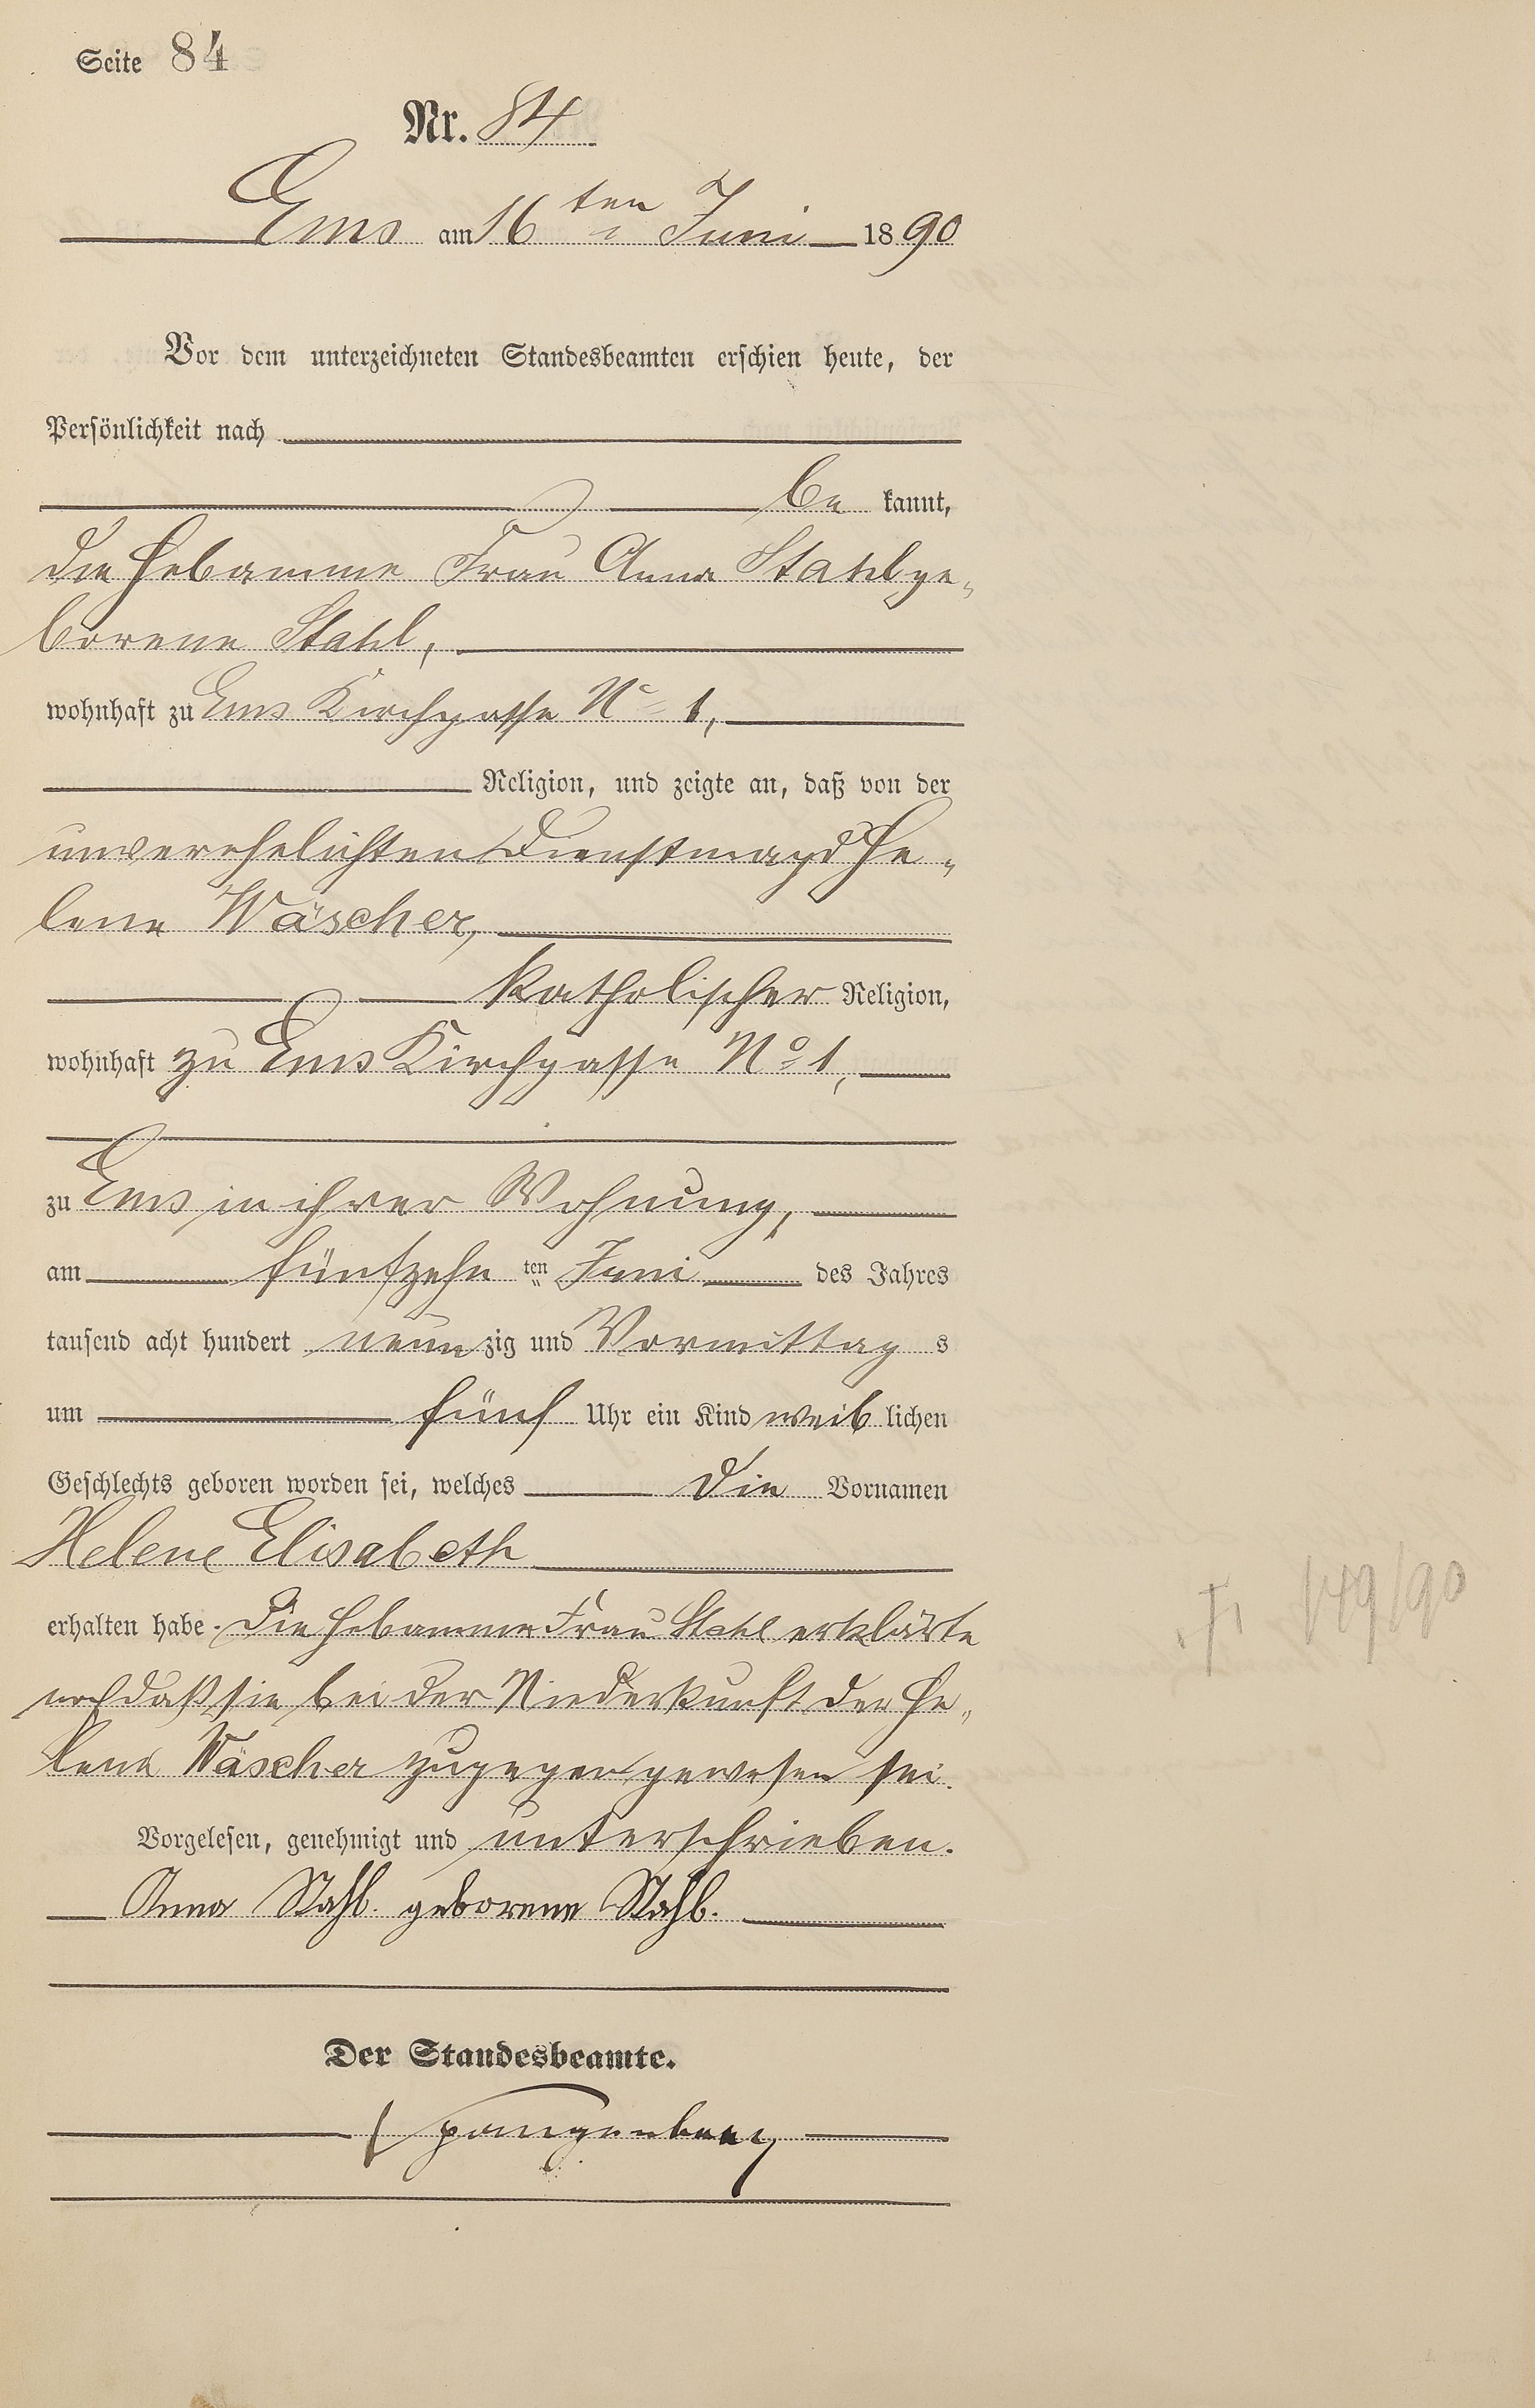 Seite 84
Nr. 84
Ems am 16ten Juni 1890
Vor dem unterzeichneten Standesbeamten erschien heute, der
Persönlichkeit nach
be kannt,
die Hebamme Frau Anna Stahl ge-
borene Stahl,
wohnhaft zu Ems Kirchgasse No 1,
Religion, und zeigte an, daß von der
unverehelichten Dienstmagd He-
lene Wäscher,
katholischer Religion,
wohnhaft zu Ems Kirchgasse No 1,
zu Ems in ihrer Wohnung,
am fünfzehn ten Juni des Jahres
tausend acht hundert neun zig und Vormittag s
um fünf Uhr ein Kind weib lichen
Geschlechts geboren worden sei, welches die Vornamen
Helene Elisabeth
erhalten habe. Die Hebamme Frau Stahl erklärte
noch daß sie bei der Niederkunft der He-
lene Wäscher zugegen gewesen sei.
Vorgelesen, genehmigt und unterschrieben.
Anna Stahl. geborene Stahl.
Der Standesbeamte.
Spangenberg
† 149/90